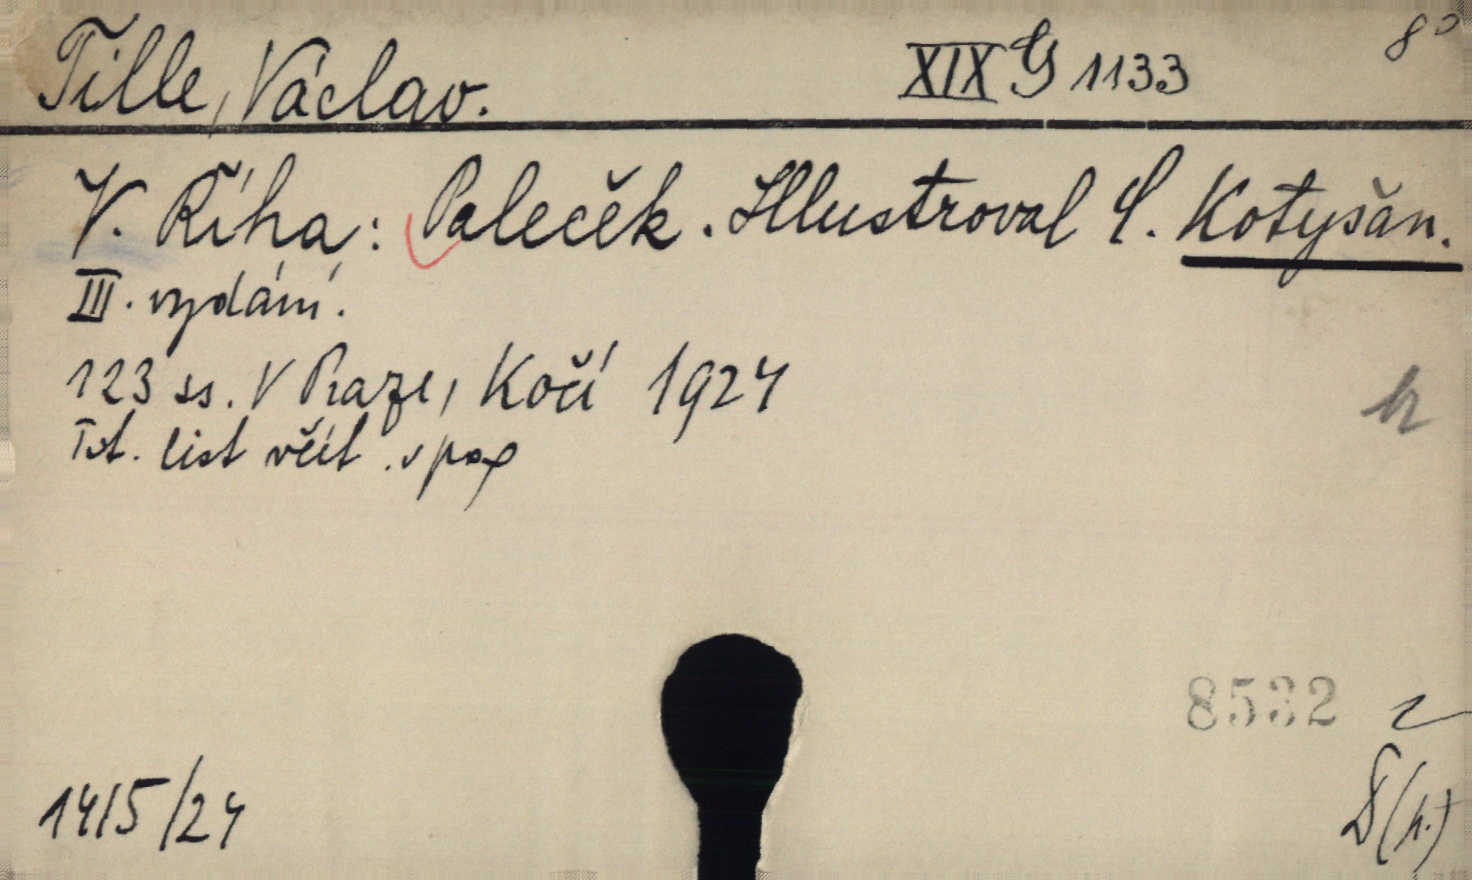 Tille, Václav. XIX G 1133 8°
V. Říha: Paleček. Illustroval L. Kotyšan.
III. vydání.
123 ss. V Praze, Kočí 1924
Tit. list včít.
h
8532
1415/24
D(h.)